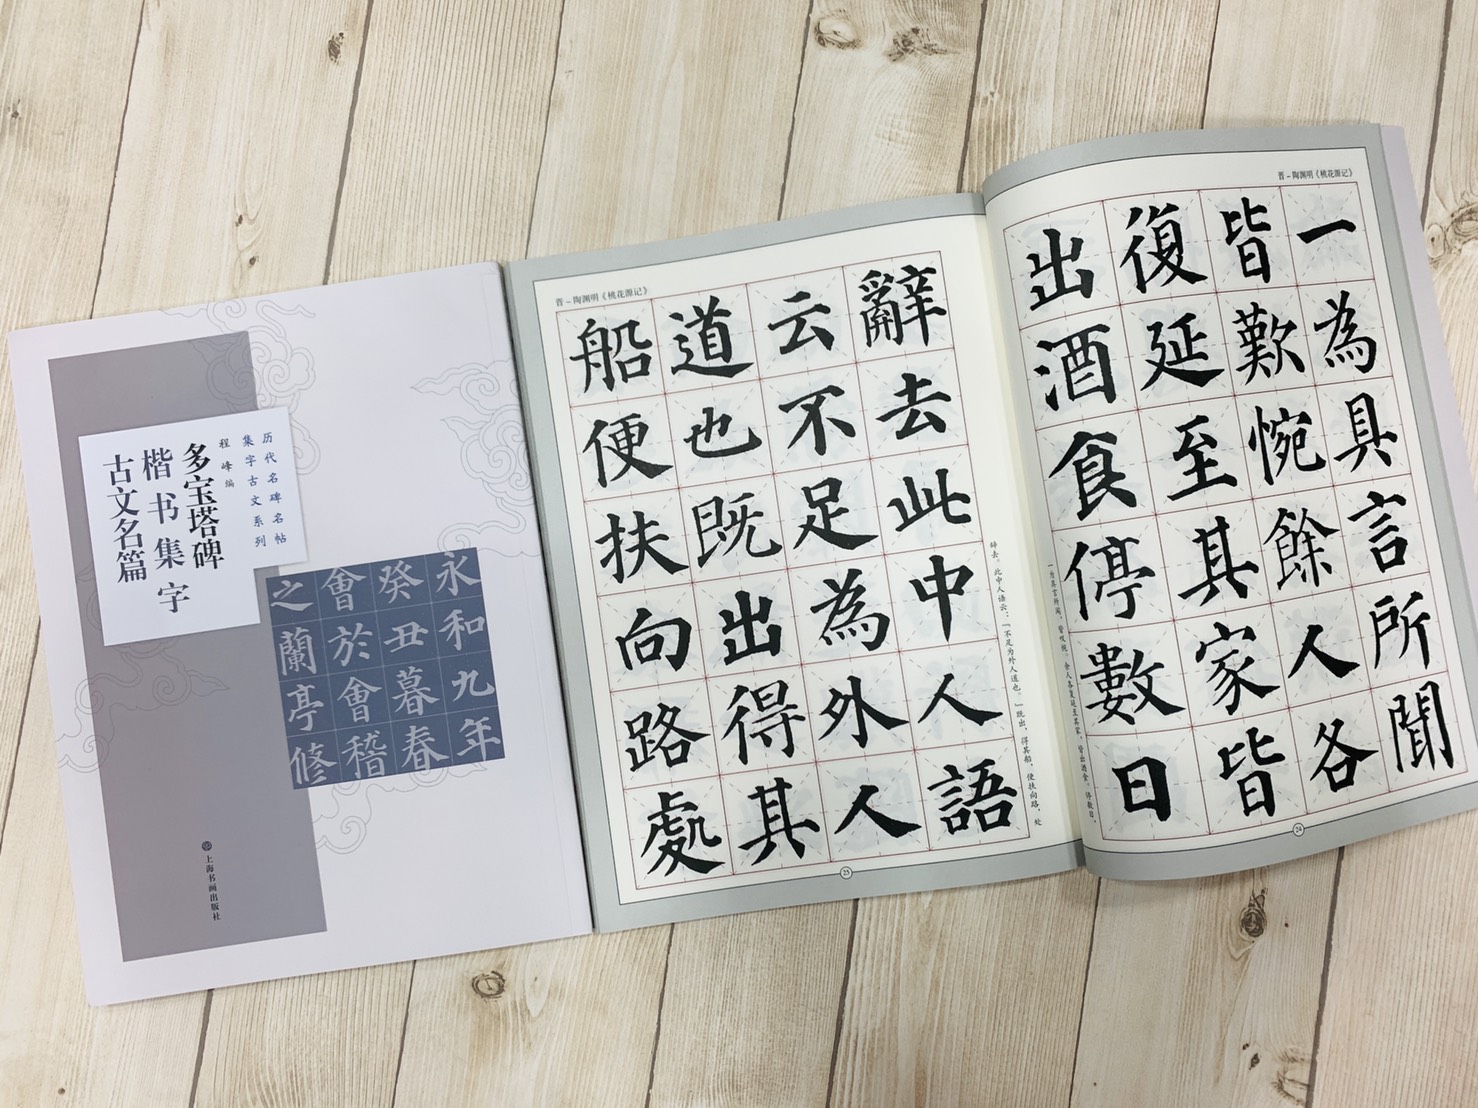 历代名碑名帖
集字古文系列
程峰编
多宝塔碑
楷书集字
古文名篇
永和九年
癸丑暮春
會於會稽
之蘭亭修
上海书画出版社
晋–陶渊明《桃花源记》
一為具言所聞
皆歎惋餘人各
復延至其家皆
出酒食停數日
一为具言所闻，皆叹惋。余人各复延至其家，皆出酒食。停数日，
24
晋–陶渊明《桃花源记》
辭去此中人語
云不足為外人
道也既出得其
船便扶向路處
辞去。此中人语云：「不足为外人道也。」既出，得其船，便扶向路，处
25